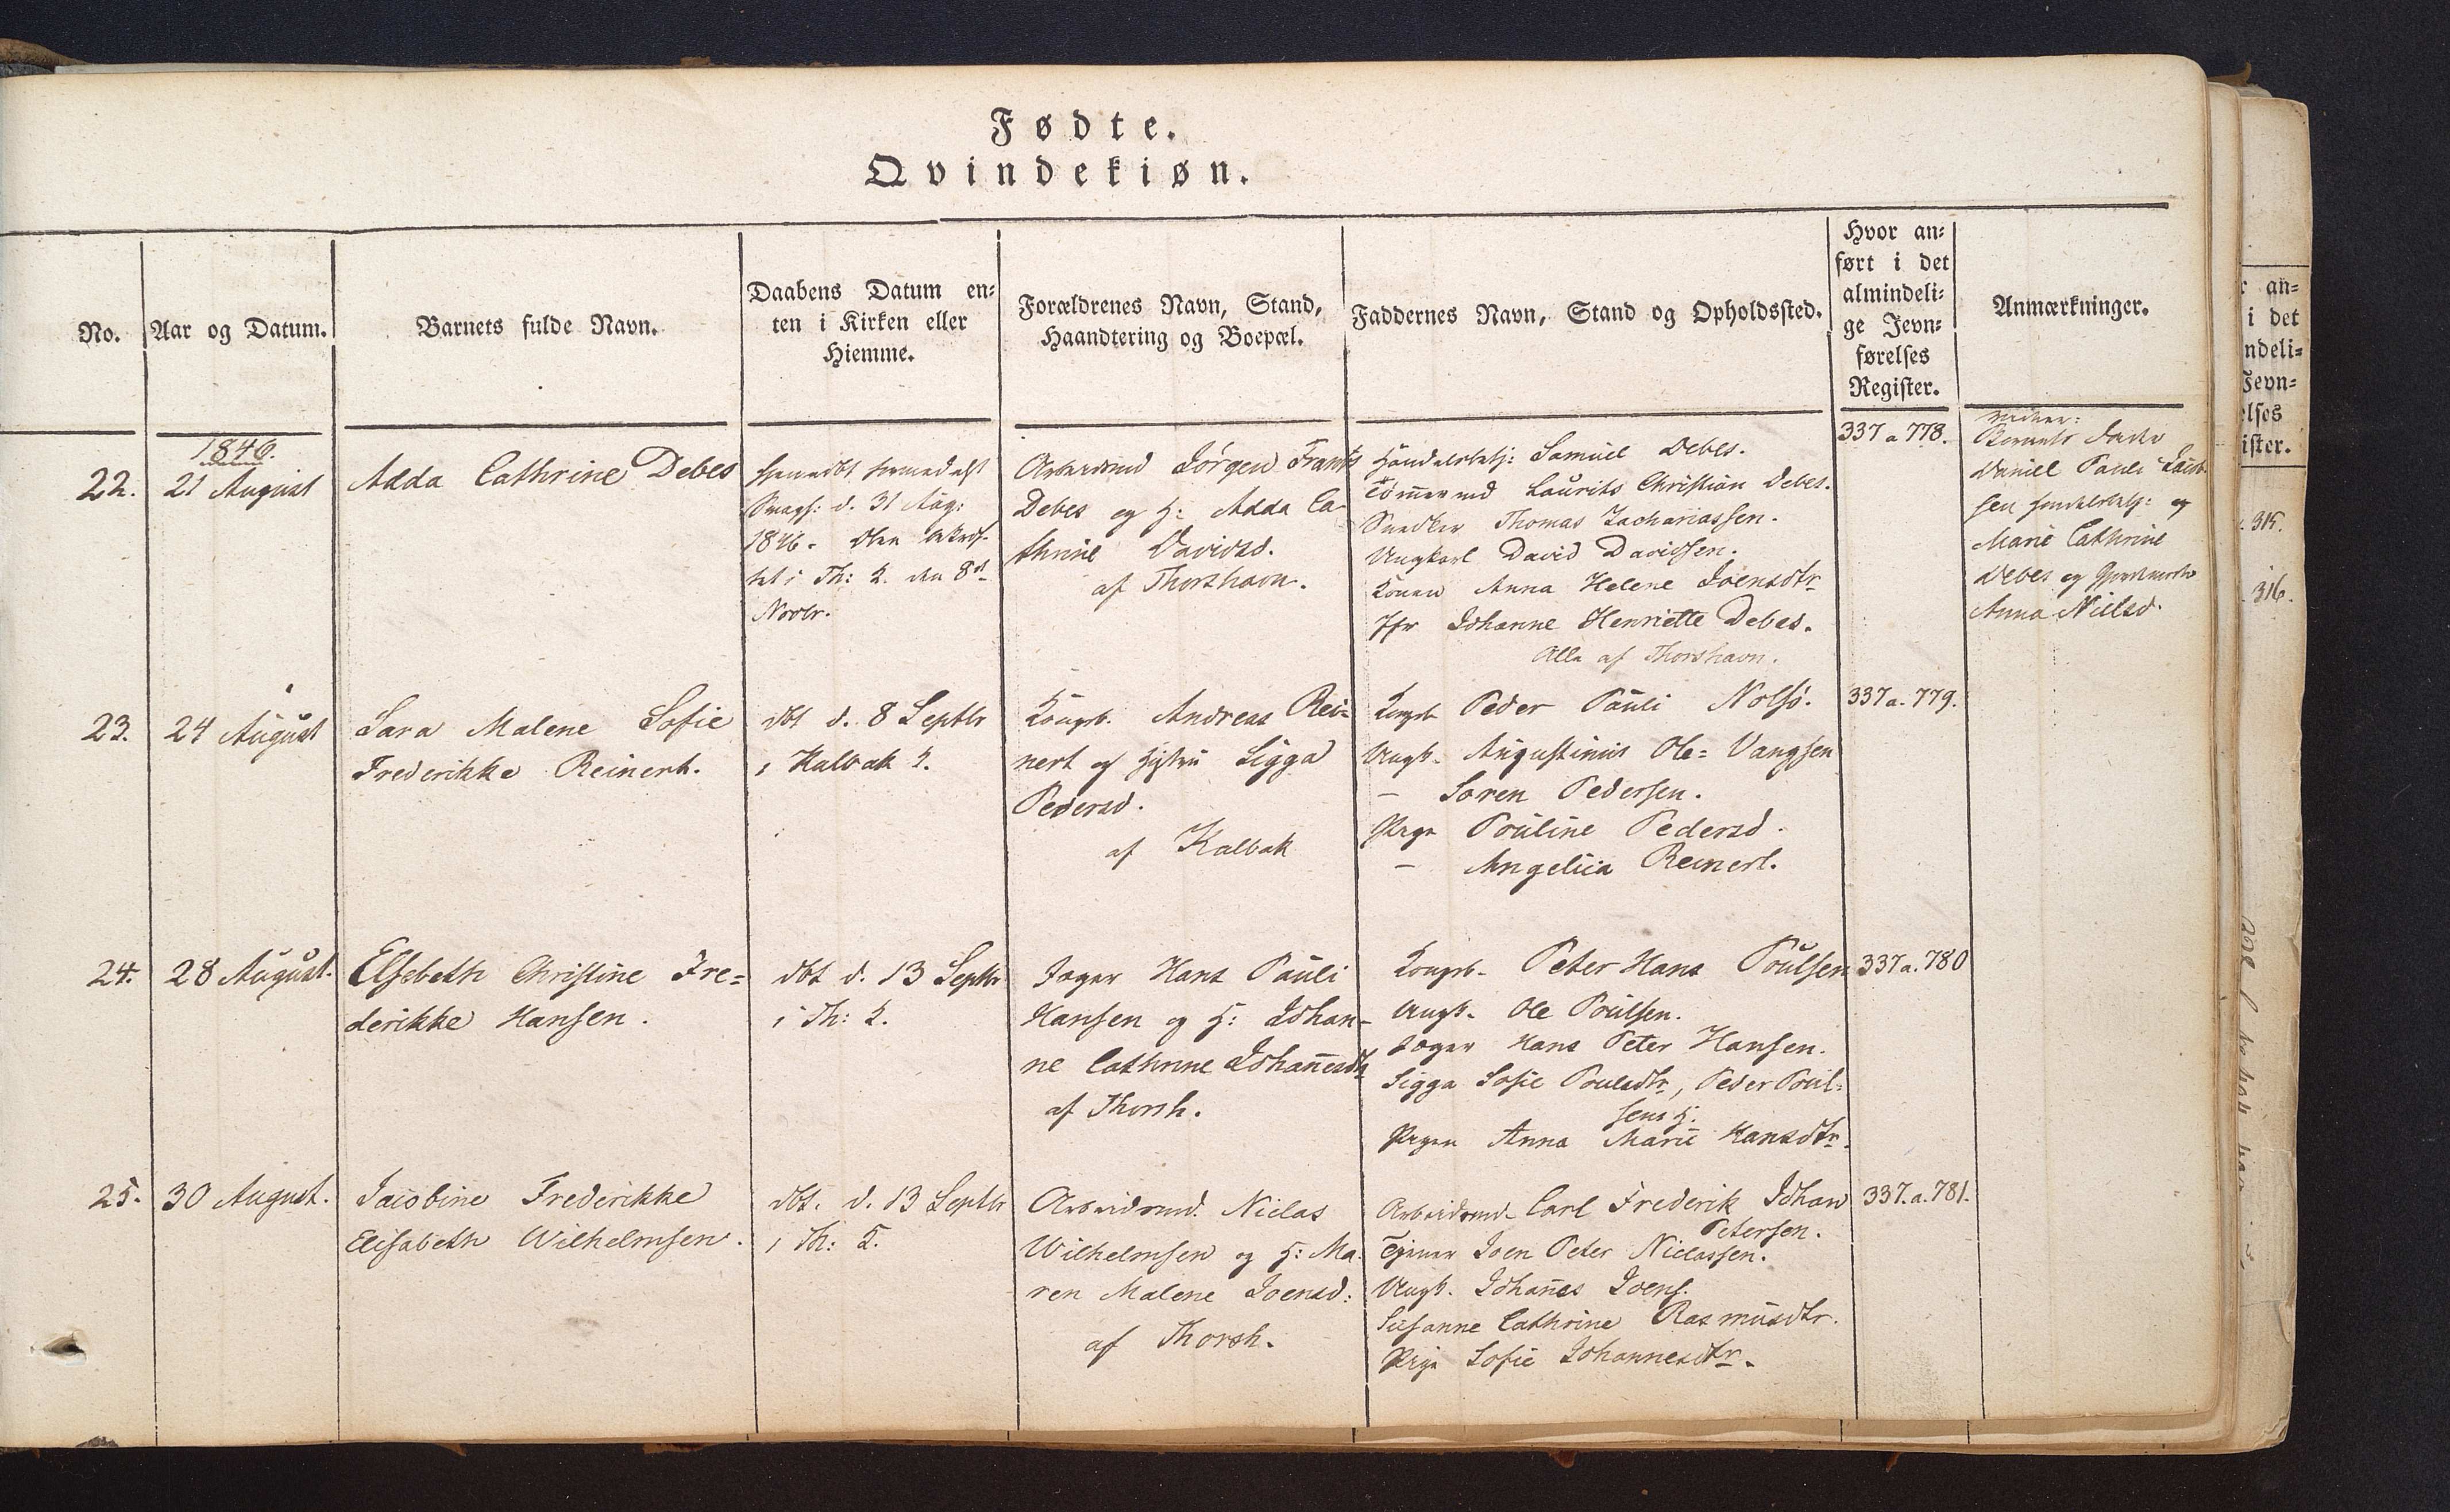 Fødte.
Qvindekiøn.
No.
Aar og Datum.
Barnets fulde Navn.
Daabens Datum en-
ten i Kirken eller
Hiemme.
Forældrenes Navn, Stand,
Haandtering og Boepæl.
Faddernes Navn, Stand og Opholdssted.
Hvor an-
ført i det
almindeli-
ge Jevn-
førelses
Register.
Anmærkninger.
1846.
22.
21 August
Adda Cathrine Debes
hjemedbt formedelst
Svagh: d. 31 Aug:
1846. Den
i Th: K. den 8de
Novbr.
Arbeidsmd Jörgen Frants
Debes og H: Adda Ca-
thrine Davidsd.
af Thorshavn.
Handelsbetj: Samuel Debes.
Tömermd Laurits Christian Debes.
Snedker Thomas Zachariassen.
Ungkarl David Davidsen.
Konen Anna Helene Joensdtr
Jfr Johanne Henriette Debes.
Alle af Thorshavn.
337 a 778.
Daniel Pauli
sen Handelsbetj: og
Marie Cathrine
Debes og
Anna Nielsd.
23.
24 August
Sara Malene Sofie
Frederikke Reinert.
dbt d. 8 Septbr
i Kalbak K.
Kongsb. Andreas Rei-
nert og Hustru Sigga
Pedersd.
af Kalbak
Kongsb Peder Pauli Nolsö.
Ungk. Augustinus Ole-Vangsen
— Soren Pedersen.
Pige Pouline Pedersd.
— Angelica Reinert.
337 a. 779.
24.
28 August.
Elsebeth Christine Fre-
derikke Hansen.
dbt d. 13 Septbr
i Th: K.
Jæger Hans Pauli
Hansen og H: Johan-
ne Cathrine Johanesdtr
af Thorsh.
Kongsb. Peter Hans Poulsen
Ungk. Ole Poulsen.
Jæger Hans Peter Hansen.
Sigga Sofie Poulsdtr, Peder Poul-
sens H.
Pigen Anna Marie Hansdtr.
337 a. 780
25.
30 August.
Jacobine Frederikke
Elisabeth Wilhelmsen.
dbt. d. 13 Septbr
i Th: K.
Arbeidsmd. Niclas
Wilhelmsen og H: Ma-
ren Malene Joensd:
af Thorsh.
Arbeidsmd. Carl Frederik Johan
Petersen.
Tjener Joen Peter Niclassen.
Ungk. Johanes Joens.
Susanne Cathrine Rasmusdtr.
Pige Sofie Johannesdtr.
337. a. 781.
an-
i det
ndeli-
Jevn-
elses
ister.
315.
316.